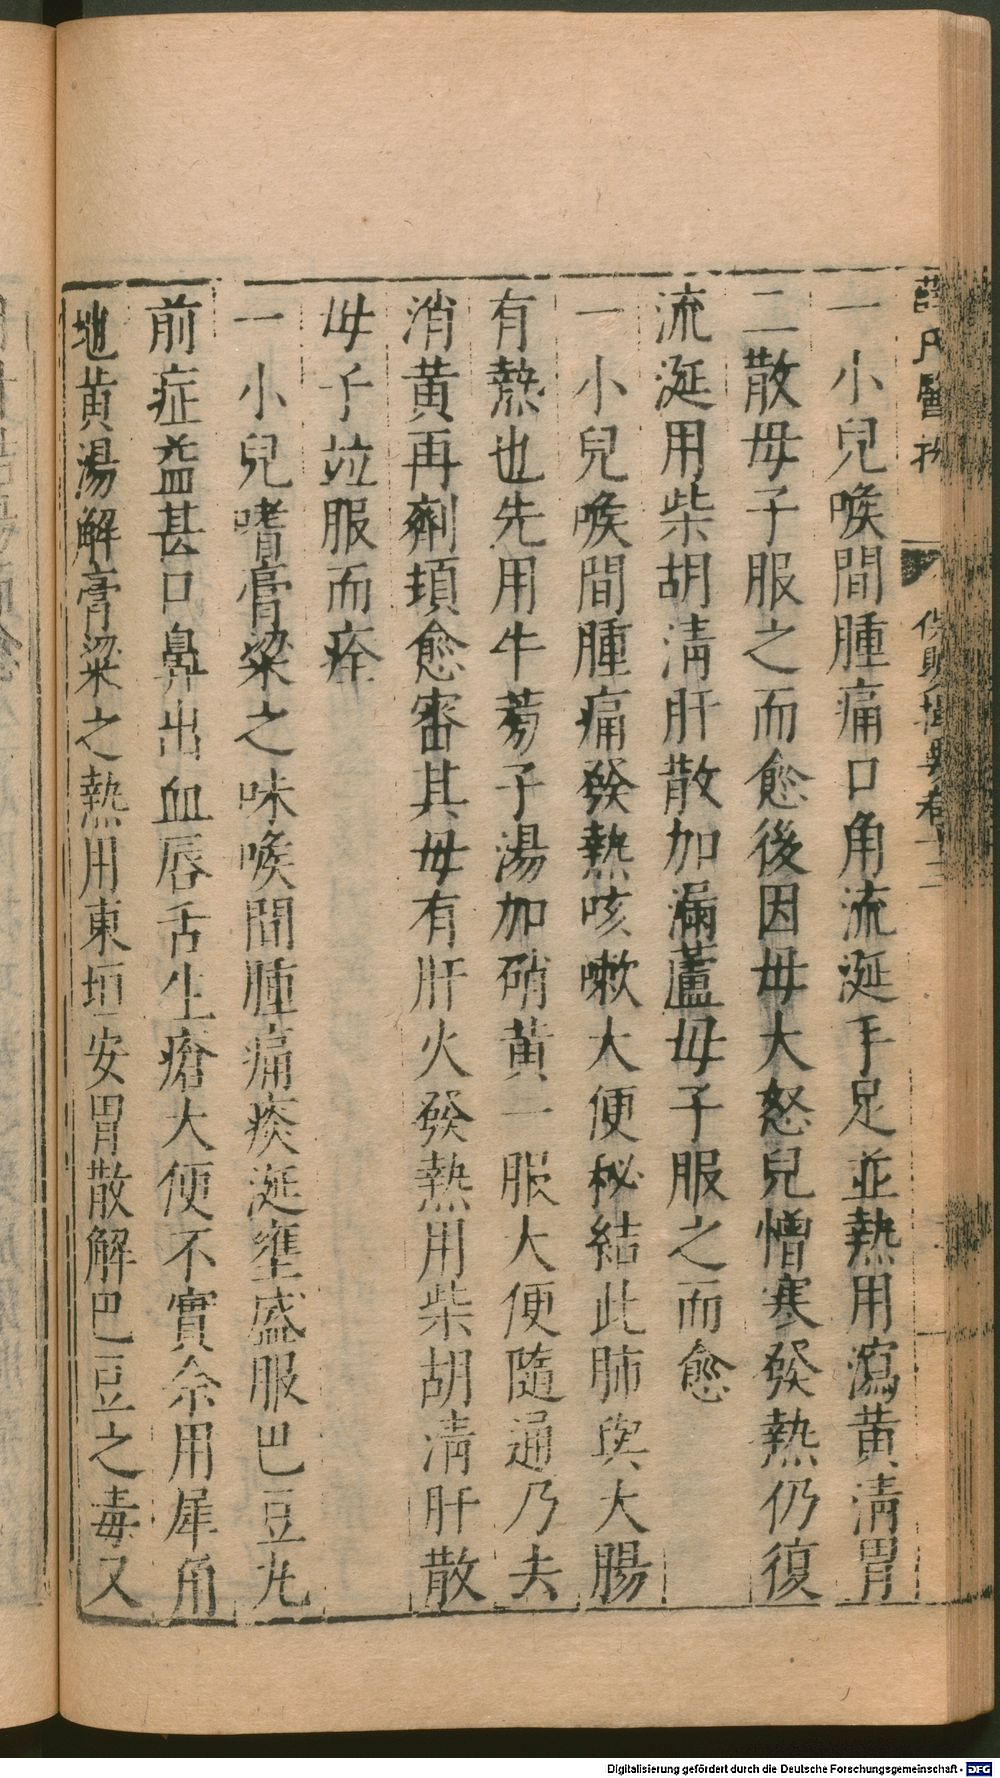 薛氏醫按
保嬰撮要卷十三
一小兒喉間腫痛口角流涎手足並熱用瀉黃清胃
二散母子服之而愈後因母大怒兒憎寒發熱仍復
流涎用柴胡清肝散加漏蘆母子服之而愈
一小兒喉間腫痛發熱咳嗽大便秘結此肺與大腸
有熱也先用牛蒡子湯加硝黃一服大便隨通乃去
消黃再劑頓愈審其母有肝火發熱用柴胡清肝散
母子竝服而痊
一小兒嗜膏粱之味喉間腫痛痰涎壅盛服巴豆丸
前症益甚口鼻出血唇舌生瘡大便不實余用犀角
地黃湯解膏粱之熱用東垣安胃散解巴豆之毒又
Digitalisierung gefördert durch die Deutsche Forschungsgemeinschaft - DFG